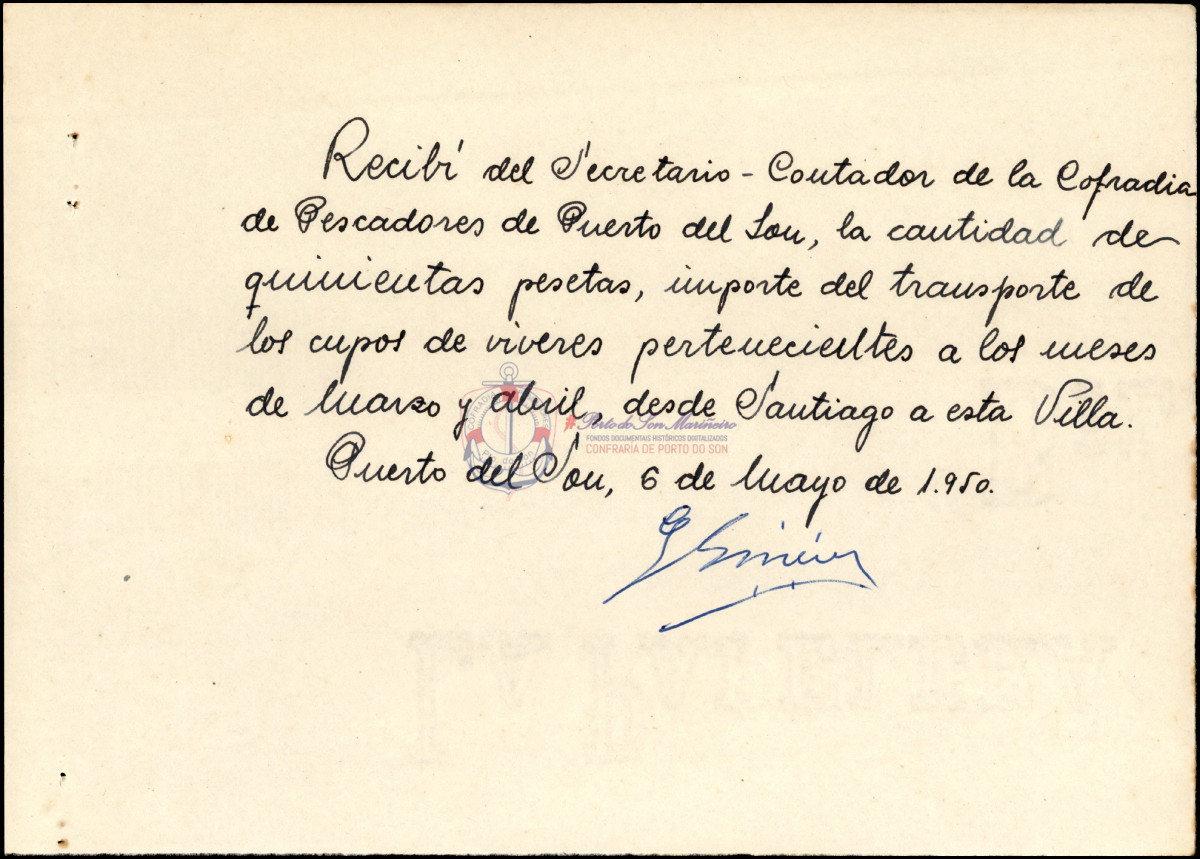 Recibí del Secretario - Contador de la Cofradia
de Pescadores de Puerto del Son, la cantidad de
quinientas pesetas, importe del transporte de
los cupos de viveres pertenecientes a los meses
de Marzo y abril, desde Santiago a esta Villa.
#Porto do Son Mariñeiro
FONDOS DOCUMENTAIS HISTÓRICOS DIGITALIZADOS
CONFRARÍA DE PORTO DO SON
Puerto del Son, 6 de Mayo de 1.950.